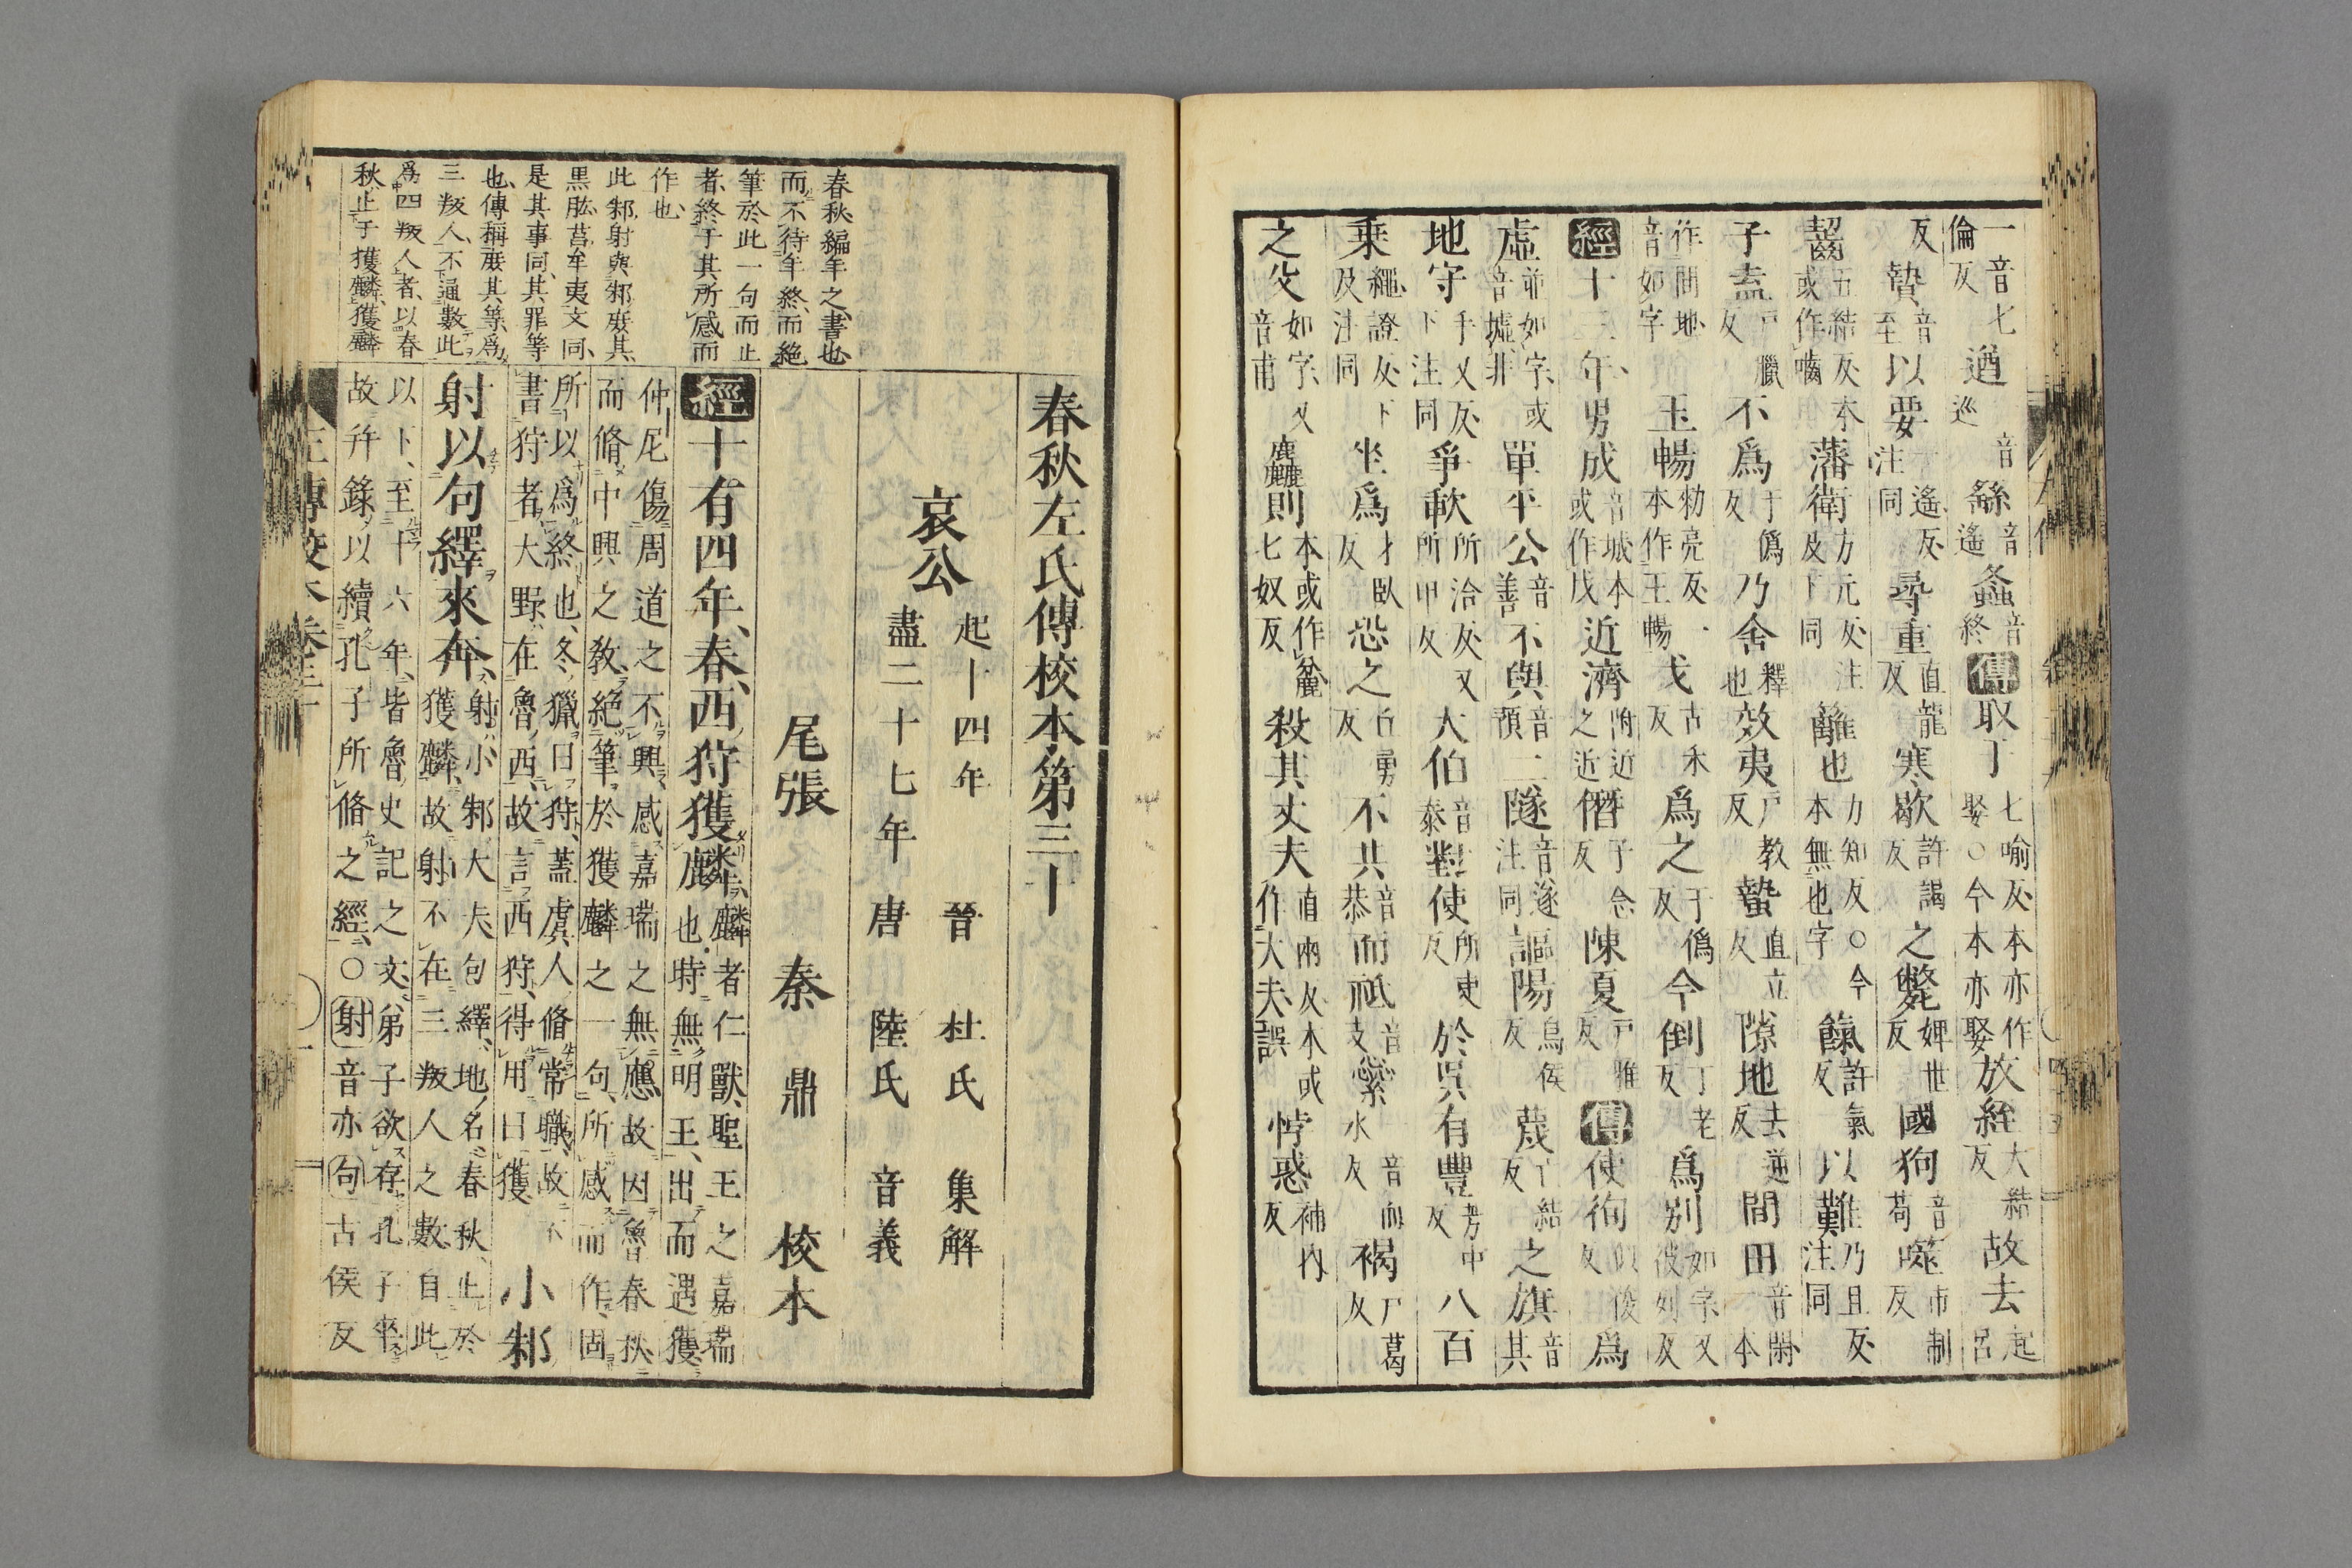 一音七倫反遒音巡繇音遙螽音終傳取丁七喻反本亦作娶○今本亦娶放絰大結反故去起呂
反贄音至以要一遙反注同尋重直龍反寒歇許謁反之斃婢世反國狗音苟噬市制反
齧五結反本或作囓藩衛方元反注及下同籬也力知反○今本無也字餼許氣反以難乃且反注同
子盍戶臘反不爲于僞反乃舍釋也效夷戶教反蟄直立反隙地去逆反間田音閑一本
作間地音如字玉暢勑亮反本作王暢戈古禾反爲之于僞反今倒丁老反爲别如字又彼列反
經十三年男成音城本或作戌近濟附近之近僭子念反陳夏戶雅反傳使徇似俊反爲
虛並如字或音墟非單平公音善不與音預二隧音遂注同謳陽烏侯反蔑亡結反之旗音其
地守手又反下注同爭歃所洽反又所甲反大伯音泰對使所吏反於吳有豐芳中反八百
乘繩證反下及注同坐爲才臥反恐之丘勇反不共音恭而祗音支繠音而水反褐戶葛反
之父如字又音甫麤則本或作麄七奴反殺其丈夫直兩反本或作大夫誤悖惑補內反
春秋編年之書也
而不待年終而絕
筆於此一句而止
者終于其所感而
作也
此邾射與邾庶其
黑肱莒牟夷文同
是其事同其罪等
也傳稱庶其等爲
三叛人不通數此
爲四叛人者以春
秋止于獲麟獲麟
春秋左氏傳校本第三十
哀公 起十四年盡二十七年 晉 杜氏 集解
唐 陸氏 音義
尾張 秦 鼎 校本
經十有四年、春、西狩獲麟、麟者仁獸、聖王之嘉瑞也、時無明王、出而遇獲
仲尼傷周道之不興、感嘉瑞之無應、故因魯春秋而脩中興之敎、絕筆於獲麟之一句、所感而作、固
所以爲終也、冬獵曰狩、蓋虞人脩常職、故不書狩者、大野在魯西、故言西狩、得用曰獲 小邾
射以句繹來奔、射小邾大夫句繹、地名、春秋止於獲麟、故射不在三叛人之數、自此
以下、至十六年、皆魯史記之文、弟子欲存孔子卒、故幷錄以續孔子所脩之經、○射音亦句古侯反
左傳校本卷三十 一